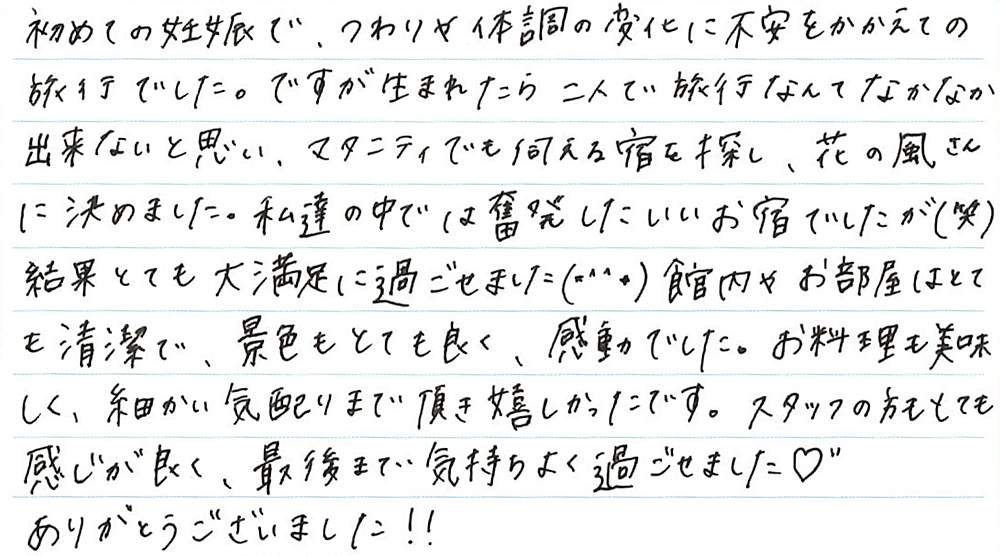 初めての妊娠で、つわりや体調の変化に不安をかかえての
旅行でした。ですが生まれたら二人で旅行なんてなかなか
出来ないと思い、マタニティでも伺える宿を探し、花の風さん
に決めました。私達の中では奮発したいいお宿でしたが(笑)
結果とても大満足に過ごせました(*^^*)館内やお部屋はとて
も清潔で、景色もとても良く、感動でした。お料理も美味
しく、細かい気配りまで頂き嬉しかったです。スタッフの方もとても
感じが良く、最後まで気持ちよく過ごせました♡"
ありがとうございました!!